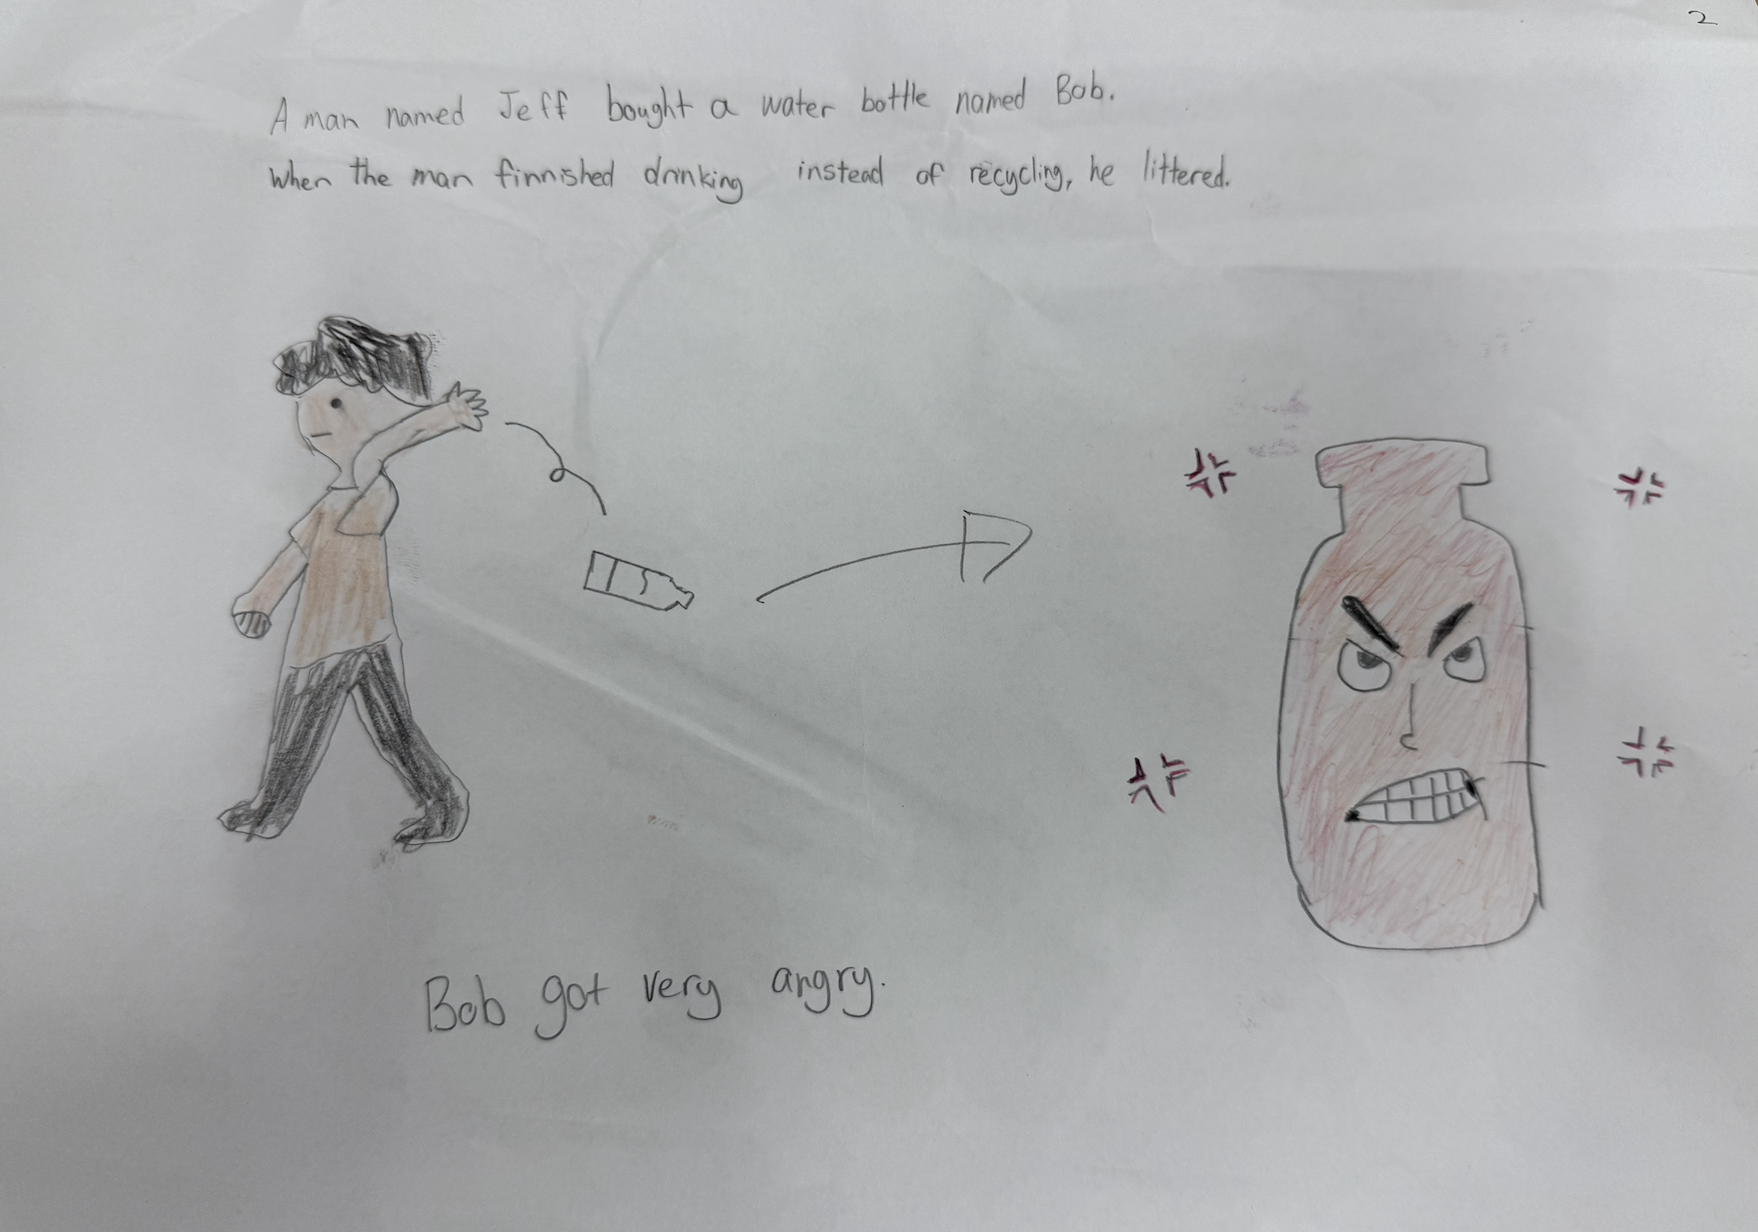 2
A man named Jeff bought a water bottle named Bob.
When the man finnished drinking instead of recycling, he littered.
Bob got very angry.